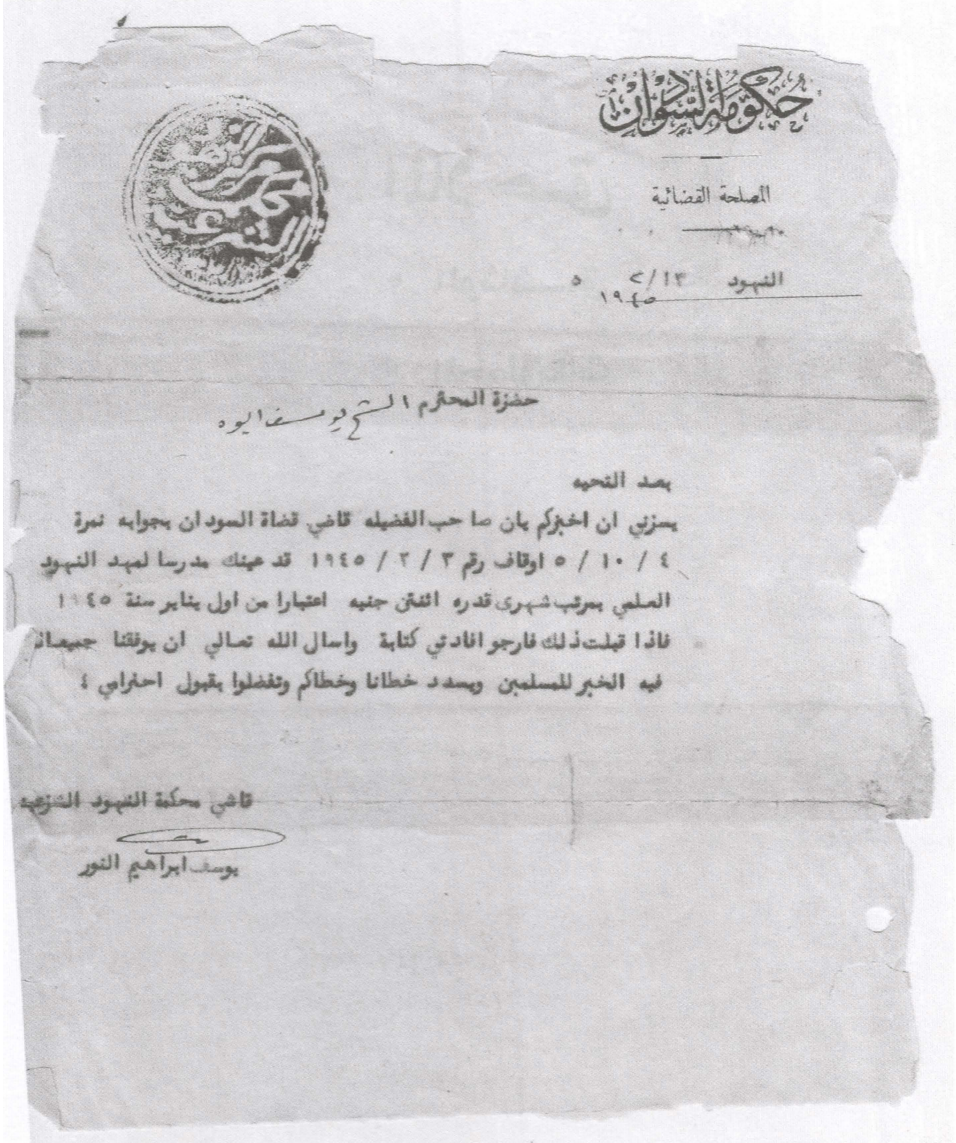 حكومة السودان
المصلحة القضائية
النهود ١٣/٢ ٥
١٩٤٥
حضرة المحترم الشيخ يوسف
بعد التحيه
يسرني ان اخبركم بان صاحب الفضيله قاضي قضاة السودان بجوابه نمرة
٤ / ١٠ / ٥ اوقاف رقم ٣ / ٢ / ١٩٤٥ قد عينك مدرسا لمهد النهود
العلمي بمرتب شهرى قدره اثنتن جنيه اعتبارا من اول يناير سنة ١٩٤٥
فاذا قبلت ذلك فارجو افادتي كتابة واسال الله تعالي ان يوفقنا جميعا
فيه الخير للمسلمين ويسدد خطانا وخطاكم وتفضلوا بقبول احترامي ؛
قاضي محكمة النهود الشرعيه
يوسف ابراهيم النور